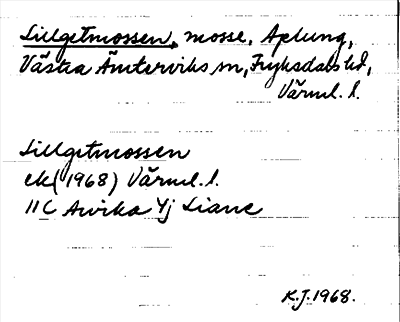 Lillgetmossen, mosse, Aplung,
Västra Ämterviks sn, Fryksdals hd,
Värml. l.
Lillgetmossen
ek (1968) Värml. l.
11C Arvika 4j Liane
K.J. 1968.